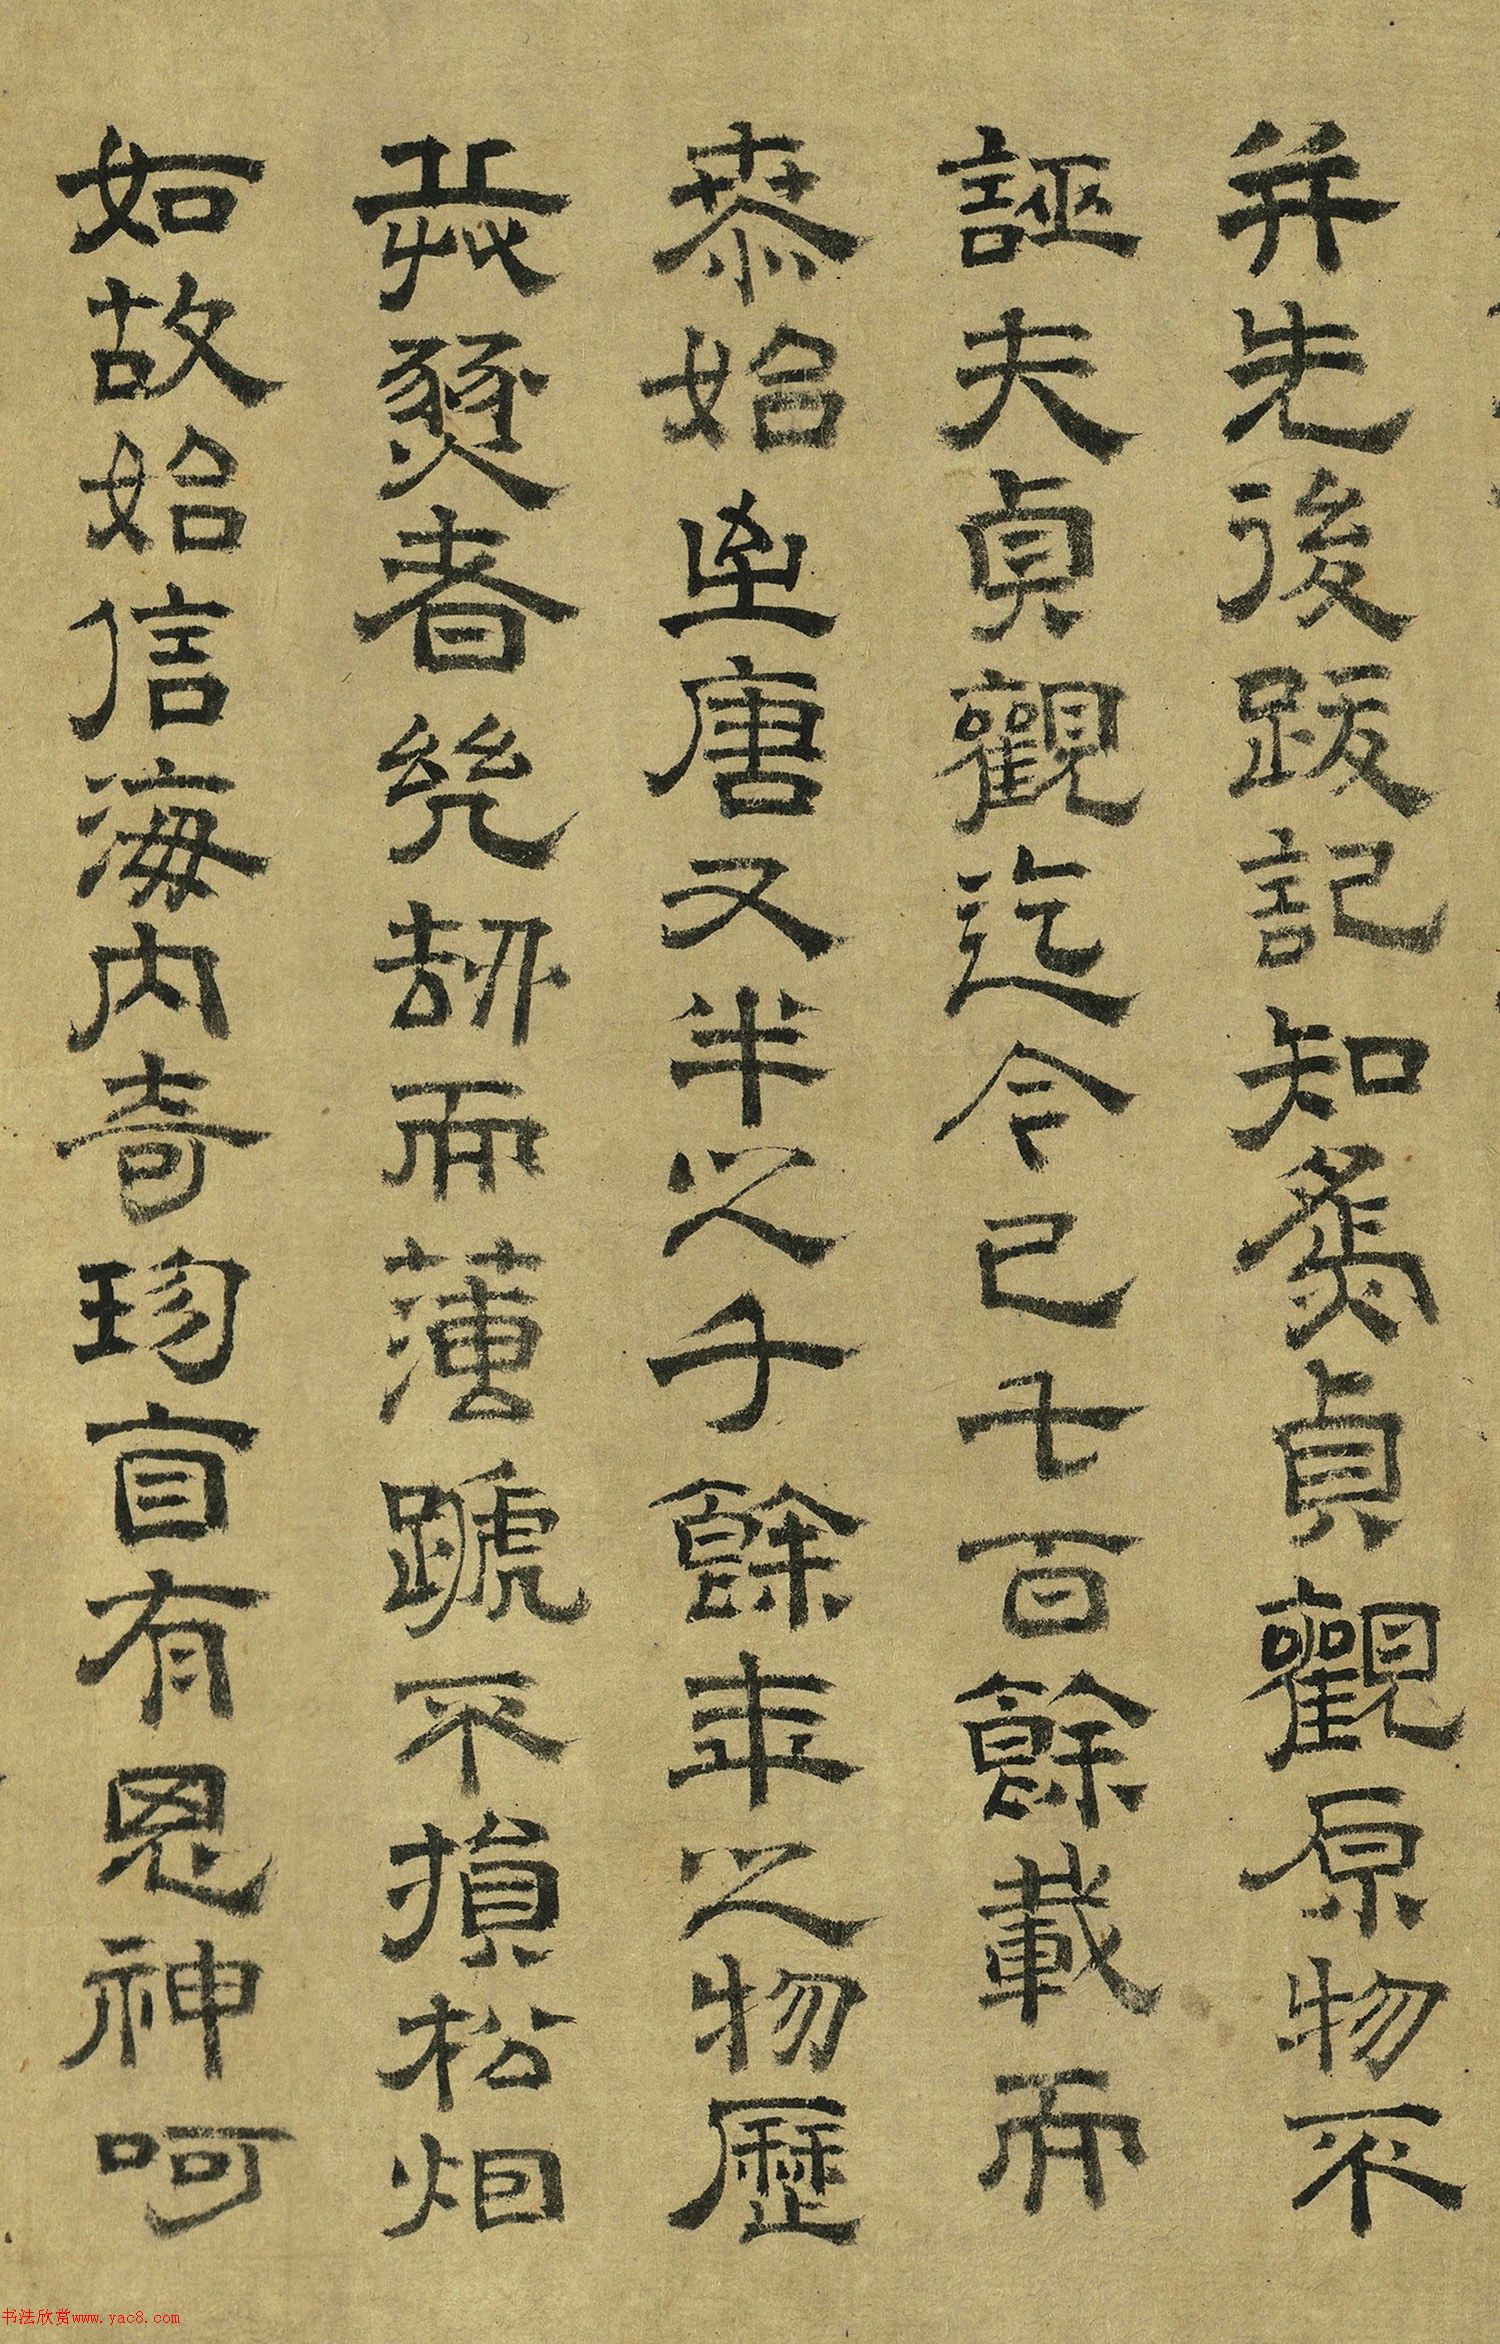 并先後跋記知為貞觀原物不
誣夫貞觀迄今已七百餘載而
泰始至唐又半之千餘年之物歷
兵燹者幾劫而薄蹏不損松烟
如故始信海內奇珍直有鬼神呵
书法欣赏www.yac8.com